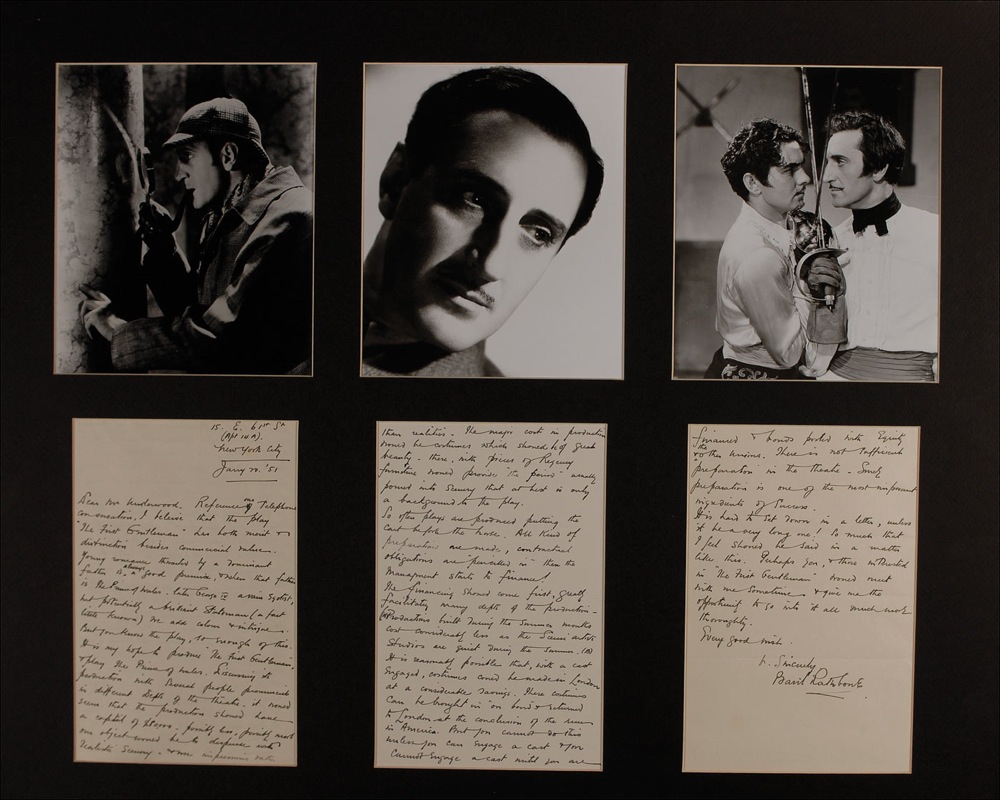 15. E. 61st St
(Apt 10A).
New York City
Jany 20. '51
Dear Mr Underwood. Reference our Telephone
conversation, I believe that the play
"The First Gentleman" has both merit &
distinction besides commercial value.
Young romance thwarted by a dominant
father is always a good premise, & when that father
is the Prince of Wales. later George IV a vain Egotist,
but potentially a brilliant Statesman (a fact
little known) we add colour & intrigue.
But you know the play, so enough of this.
It is my hope to produce "The First Gentleman,
& play the Prince of Wales. Discussing its
production with several people prominent
in different Depts of the theatre. it would
seem that the production should have
a capital of possibly less, possibly more
our object would be to dispense with
realistic Scenery - & more impressions rather
than realities. The major cost in production
would be costumes which should be of great
beauty. these, with pieces of Regency
furniture would provide "the period" usually
poured into Scenery that at best is only
a background to the play.
So often plays are produced putting the
Cart before the horse. All kind of
preparations are made, contractual
obligations are "pencilled in" then the
Managment starts to finance!
The financing should come first, greatly
facilitating many depts of the production -
(A) Productions built during the Summer months
cost considerably less as the Scenic artists
Studios are quiet during the Summer. (B)
It is reasonably possible that, with a cast
Engaged, costumes could be made in London
at a considerable Savings. These costumes
can be bought in "on bond" & returned
to London at the conclusion of the run
in America. But you cannot do this
unless you can Engage a cast & you
Cannot Engage a cast until you are
financed & bonds posted with Equity
& the other Unions. There is not sufficient
"preparation" in the theatre - Surely
preparation is one of the most important
ingredients of Success.
It is hard to set down in a letter, unless
it be a very long one, so much that
I feel should be said in a matter
like this. Perhaps you, & those interested
in "The First Gentleman" would meet
with me Sometime & give me the
opportunity to go into it all much more
thoroughly.
Every good wish
Sincerely
Basil Rathbone